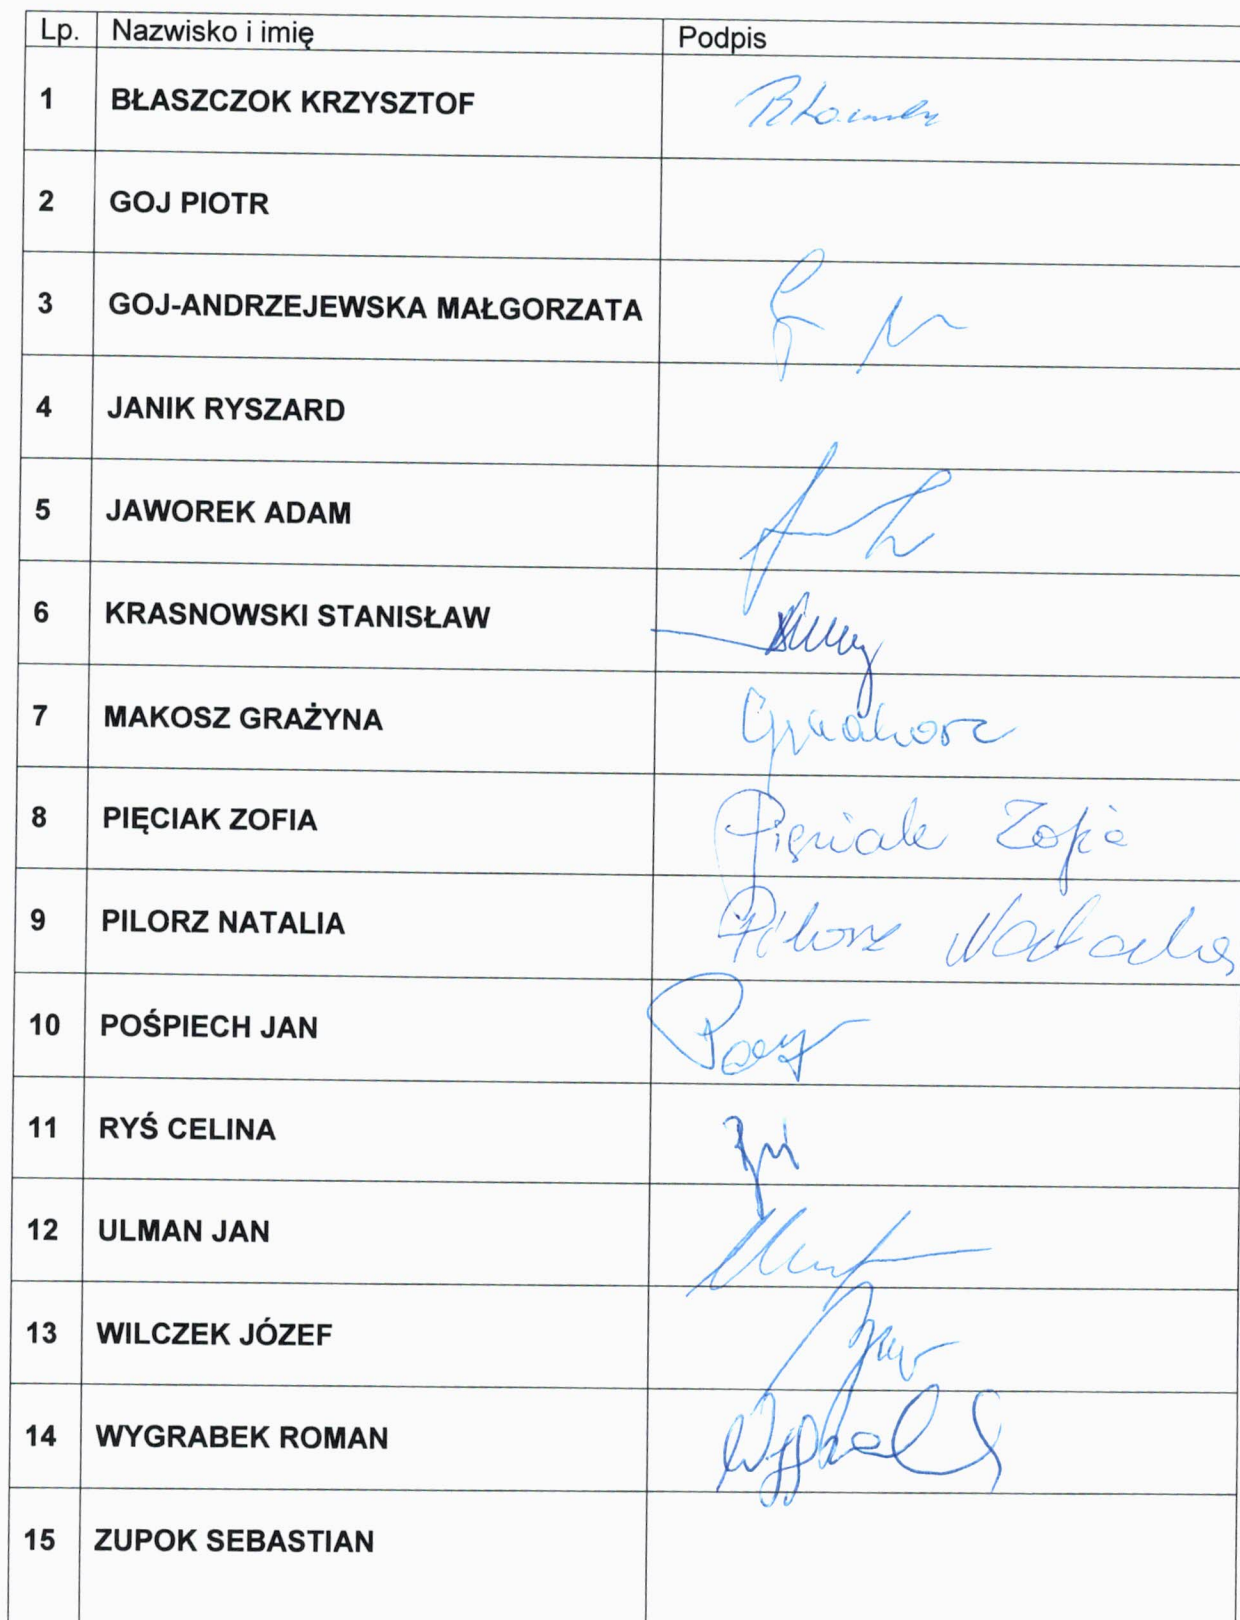 Lp. Nazwisko i imię Podpis
1 BŁASZCZOK KRZYSZTOF
2 GOJ PIOTR
3 GOJ-ANDRZEJEWSKA MAŁGORZATA
4 JANIK RYSZARD
5 JAWOREK ADAM
6 KRASNOWSKI STANISŁAW
7 MAKOSZ GRAŻYNA
8 PIĘCIAK ZOFIA Pięciak Zofia
9 PILORZ NATALIA Pilorz Natalia
10 POŚPIECH JAN
11 RYŚ CELINA
12 ULMAN JAN
13 WILCZEK JÓZEF
14 WYGRABEK ROMAN
15 ZUPOK SEBASTIAN